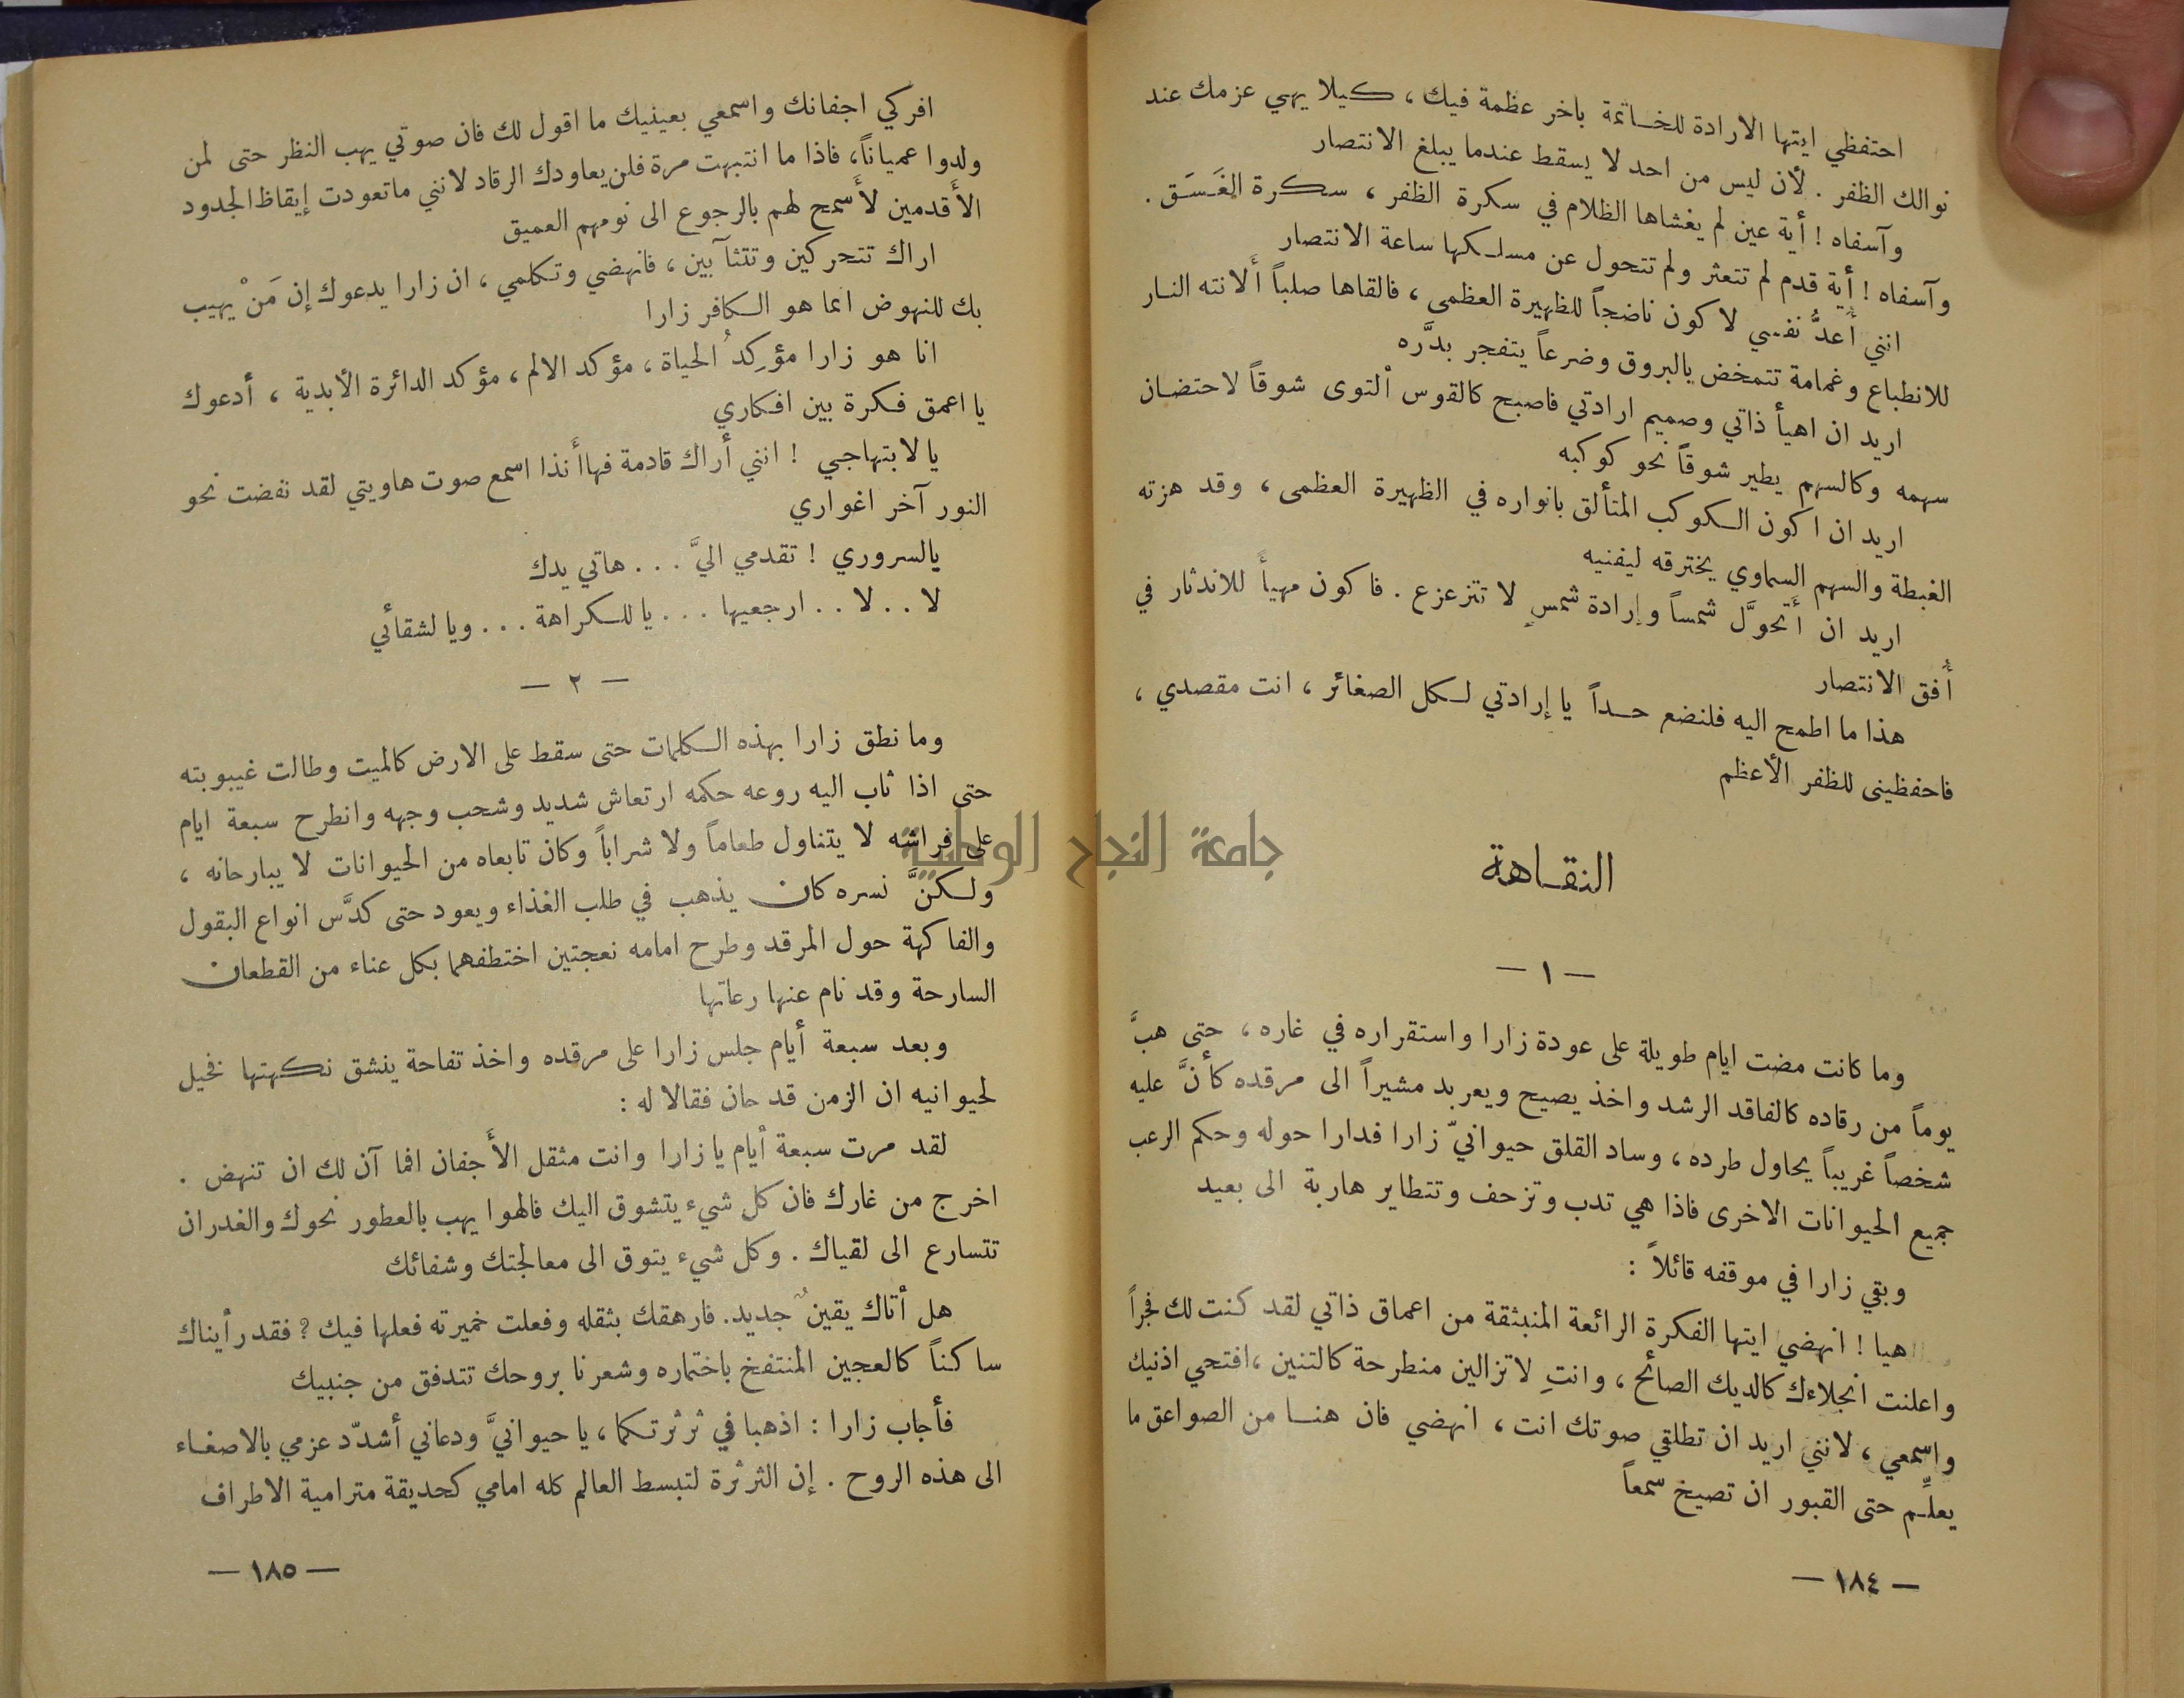 احتفظي ايتها الارادة للخاتمة باخر عظمة فيك ، كيلا يهي عزمك عند
نوالك الظفر . لأن ليس من احد لا يسقط عندما يبلغ الانتصار
وآسفاه ! أية عين لم يغشاها الظلام في سكرة الظفر ، سكرة الغَسَق .
وآسفاه ! أية قدم لم تتعثر ولم تتحول عن مسلكها ساعة الانتصار
انني أعدُّ نفسي لاكون ناضجاً للظهيرة العظمى ، فالقاها صلباً أَلانته النار
للانطباع وغمامة تتمخض بالبروق وضرعاً يتفجر بدَّره
اريد ان اهيأ ذاتي وصميم ارادتي فاصبح كالقوس ألتوى شوقاً لاحتضان
سهمه وكالسهم يطير شوقاً نحو كوكبه
اريد ان اكون الكوكب المتألق بانواره في الظهيرة العظمى ، وقد هزته
الغبطة والسهم السماوي يخترقه ليفنيه
اريد ان أتحوَّل شمساً وإرادة شمسٍ لا تتزعزع . فاكون مهيأً للاندثار في
أُفق الانتصار
هذا ما اطمح اليه فلنضع حداً يا إرادتي لكل الصغائر ، انت مقصدي ،
فاحفظينى للظفر الأعظم
النقاهة
— ١ —
وما كانت مضت ايام طويلة على عودة زارا واستقراره في غاره ، حتى هبَّ
يوماً من رقاده كالفاقد الرشد واخذ يصيح ويعربد مشيراً الى مرقده كأنَّ عليه
شخصاً غريباً يحاول طرده ، وساد القلق حيوانيّ زارا فدارا حوله وحكم الرعب
جميع الحيوانات الاخرى فاذا هي تدب وتزحف وتتطاير هاربة الى بعيد
وبقي زارا في موقفه قائلاً :
هيا ! انهضي ايتها الفكرة الرائعة المنبثقة من اعماق ذاتي لقد كنت لك فجراً
واعلنت انجلاءك كالديك الصائح ، وانتِ لا تزالين منطرحة كالتنين ،افتحي اذنيك
واسمعي ، لانني اريد ان تطلقي صوتك انت ، انهضي فان هنا من الصواعق ما
يعلِّم حتى القبور ان تصيخ سمعاً
— ١٨٤ —
افركي اجفانك واسمعي بعينيك ما اقول لك فان صوتي يهب النظر حتى لمن
ولدوا عمياناً، فاذا ما انتبهت مرة فلن يعاودك الرقاد لانني ماتعودت إيقاظ الجدود
الأَقدمين لأَسمح لهم بالرجوع الى نومهم العميق
اراك تتحركين وتتثآبين ، فانهضي وتكلمي ، ان زارا يدعوك إن مَنْ يهيب
بك للنهوض انما هو الكافر زارا
انا هو زارا مؤكِدُ الحياة ، مؤكد الالم ، مؤكد الدائرة الأبدية ، أدعوك
يا اعمق فكرة بين افكاري
يا لابتهاجي ! انني أراك قادمة فهاأنذا اسمع صوت هاويتي لقد نفضت نحو
النور آخر اغواري
يالسروري ! تقدمي اليَّ . . . هاتي يدك
لا . . لا . . ارجعيها . . . يا للكراهة . . . ويا لشقائي
— ٢ —
وما نطق زارا بهذه الكلمات حتى سقط على الارض كالميت وطالت غيبوبته
حتى اذا ثاب اليه روعه حكمه ارتعاش شديد وشحب وجهه وانطرح سبعة ايام
على فراشه لا يتناول طعاماً ولا شراباً وكان تابعاه من الحيوانات لا يبارحانه ،
ولكنَّ نسره كان يذهب في طلب الغذاء ويعود حتى كدَّس انواع البقول
والفاكهة حول المرقد وطرح امامه نعجتين اختطفهما بكل عناء من القطعان
السارحة وقد نام عنها رعاتها
وبعد سبعة أيام جلس زارا على مرقده واخذ تفاحة ينشق نكهتها فخيل
لحيوانيه ان الزمن قد حان فقالا له :
لقد مرت سبعة أيام يا زارا وانت مثقل الأَجفان افما آن لك ان تنهض .
اخرج من غارك فان كل شيء يتشوق اليك فالهوا يهب بالعطور نحوك والغدران
تتسارع الى لقياك . وكل شيء يتوق الى معالجتك وشفائك
هل أتاك يقينٌ جديد. فارهقك بثقله وفعلت خميرته فعلها فيك ؟ فقد رأيناك
ساكناً كالعجين المنتفخ باختماره وشعرنا بروحك تتدفق من جنبيك
فأجاب زارا : اذهبا في ثرثرتكما ، يا حيوانيَّ ودعاني أشدّد عزمي بالاصغاء
الى هذه الروح . إن الثرثرة لتبسط العالم كله امامي كحديقة مترامية الاطراف
— ١٨٥ —
جامعة النجاح الوطنية